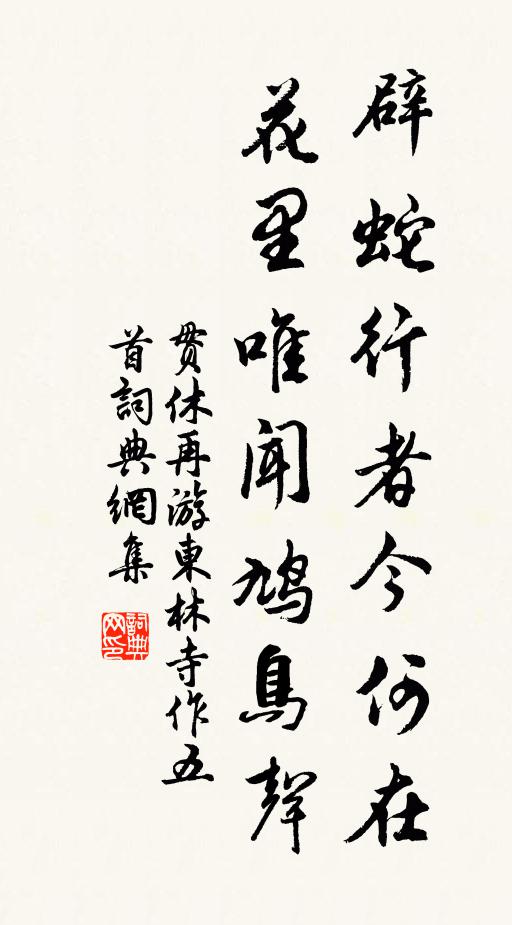 辟蛇行者今何在
花里唯闻鸠鳥聲
贯休再游東林寺作五
首詞典網集
詞典网印